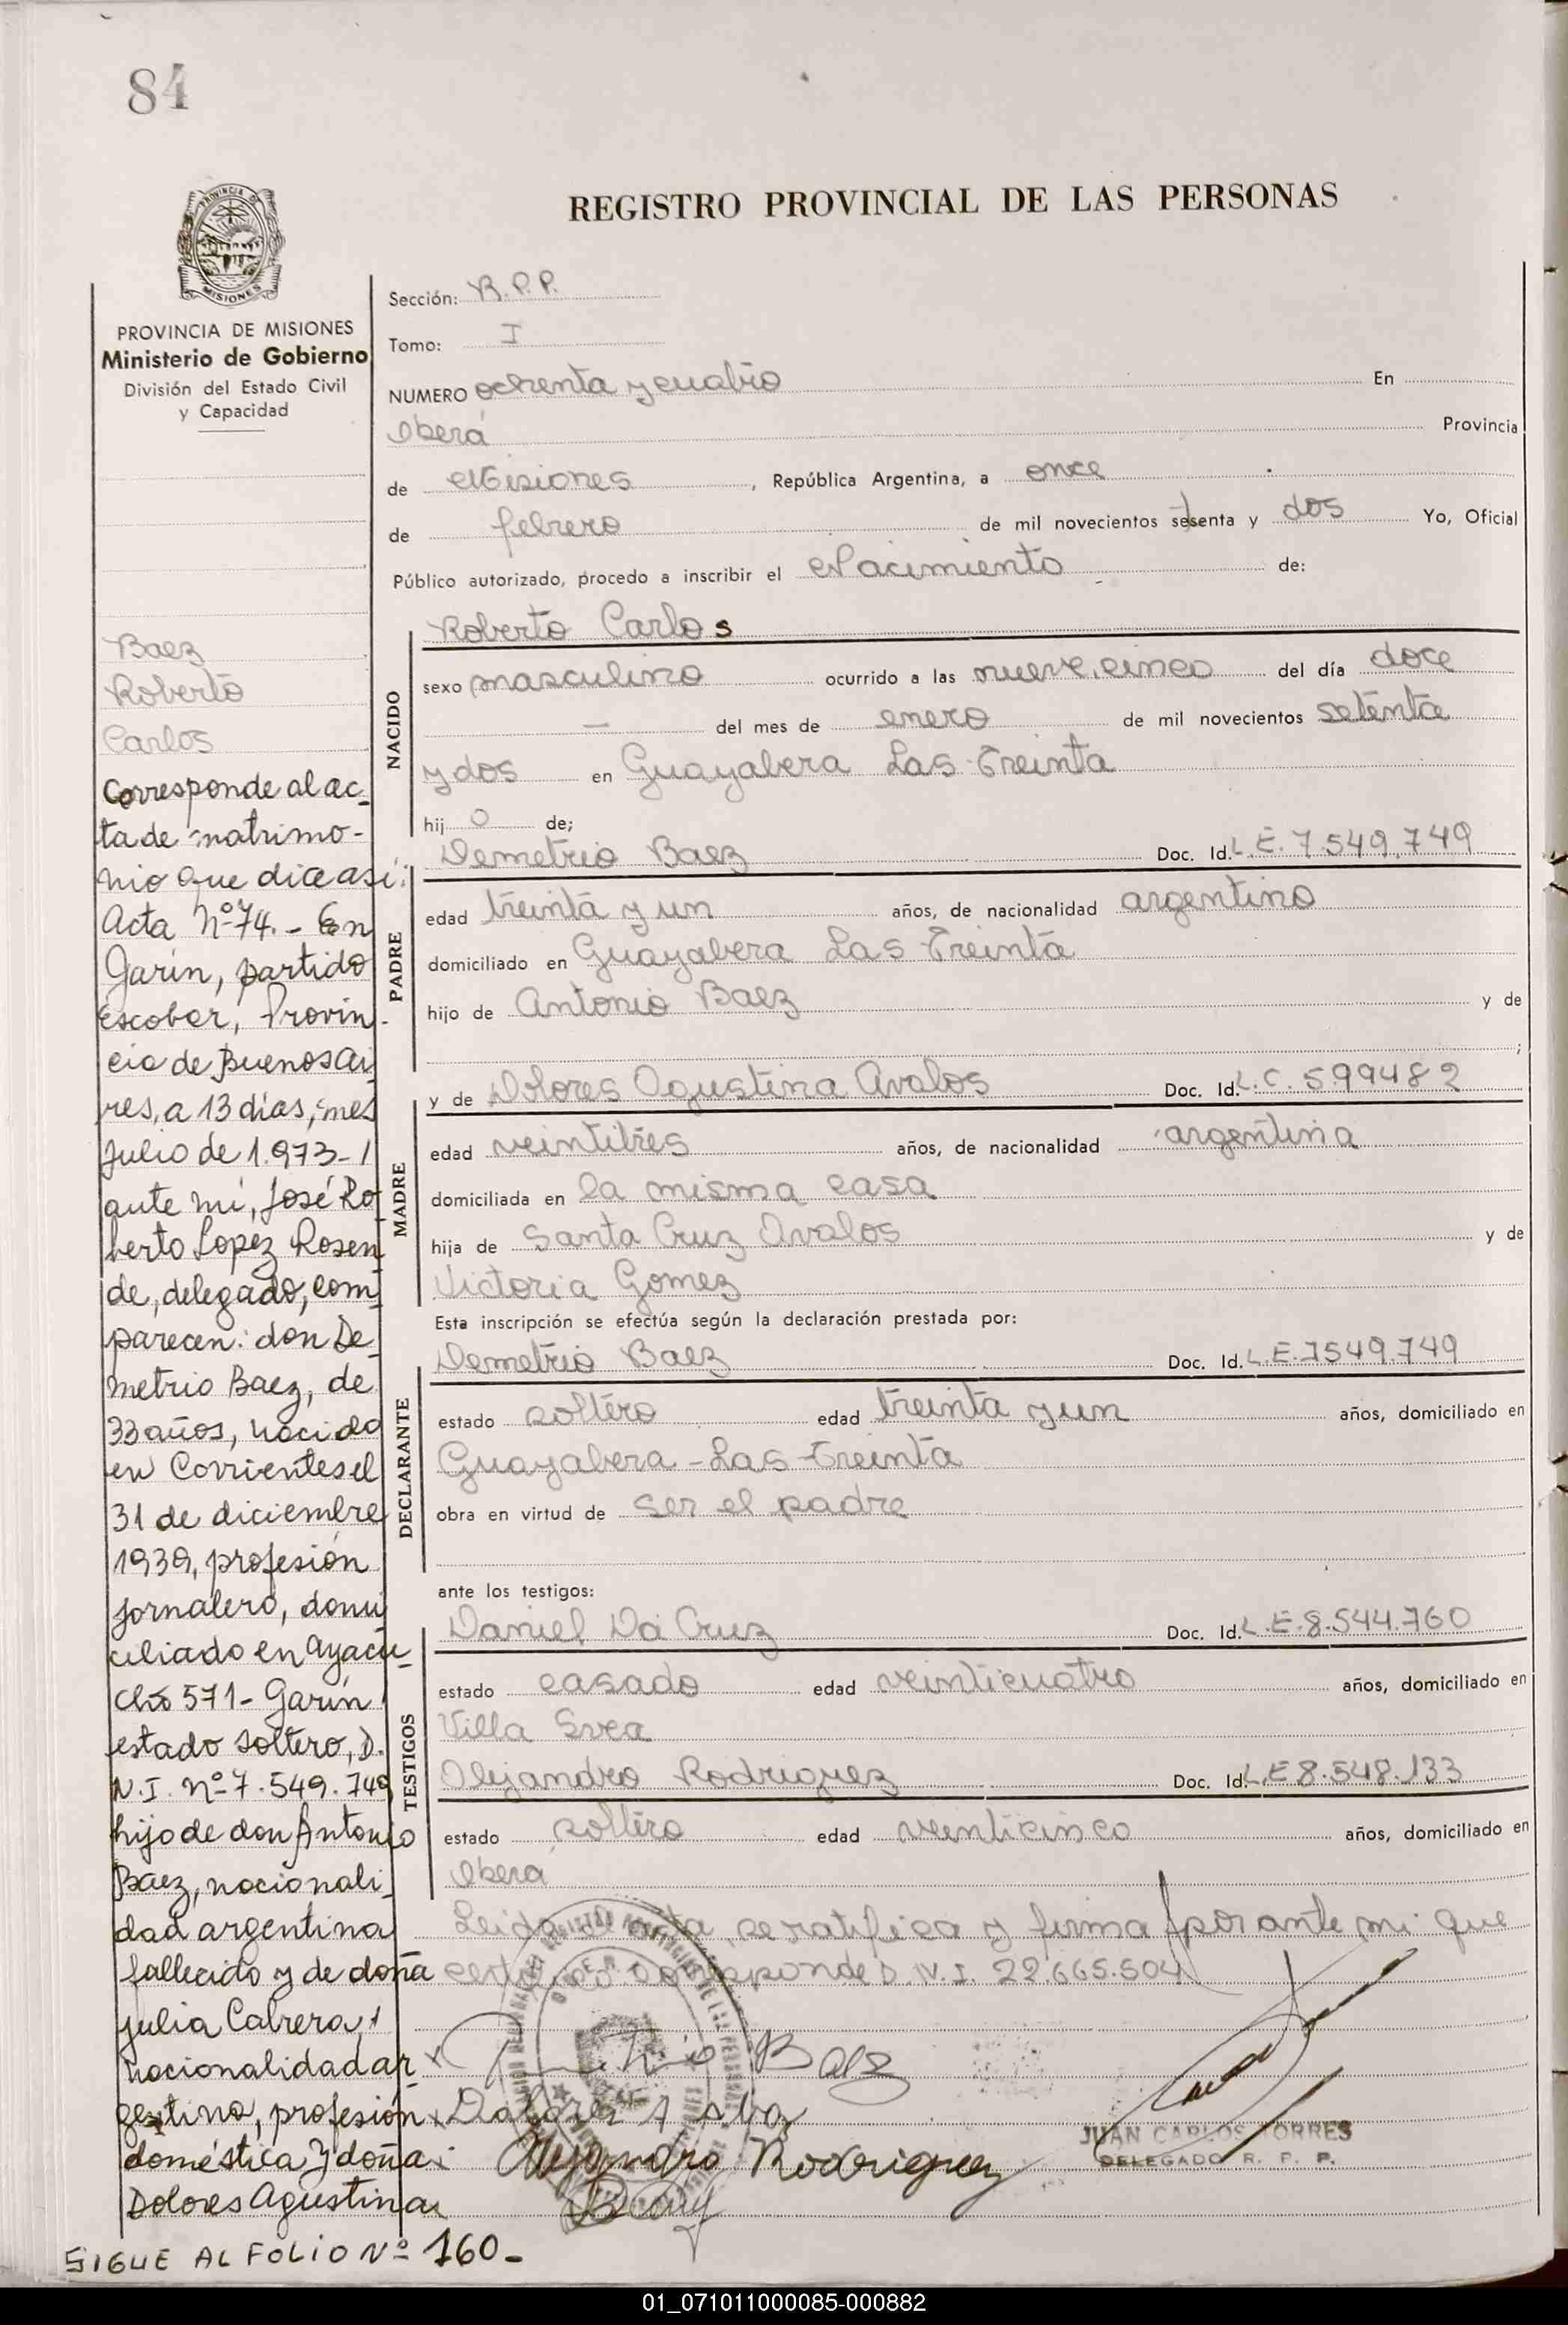 84
REGISTRO PROVINCIAL DE LAS PERSONAS
PROVINCIA DE
MISIONES
PROVINCIA DE MISIONES
Ministerio de Gobierno
División del Estado Civil
y Capacidad
Baez
Roberto
Carlos
Corresponde al ac-
ta de matrimo-
nio que dice así:
Acta Nº 74.- En
Garín, partido
Escobar, Provin-
cia de Buenos Ai
res, a 13 días, mes
Julio de 1.973-
ante mí, José Ro
berto Lopez Rosen
de, delegado, com-
parecen: don De-
metrio Baez, de
33 años, nacido
en Corrientes el
31 de diciembre
1939, profesión
jornalero, domi
ciliado en Ayacu-
cho 571- Garín
estado soltero, D.
N.I. nº 7.549.749
hijo de don Antonio
Baez, nacionali-
dad argentina
fallecido y de doña
Julia Cabrera,
nacionalidad ar-
gentina, profesión
doméstica y doña
Dolores Agustina
SIGUE AL FOLIO Nº 160-
Sección: R.P.P.
Tomo: I
NUMERO ochenta y cuatro En
Oberá Provincia
de Misiones, República Argentina, a once
de febrero de mil novecientos setenta y dos Yo, Oficial
Público autorizado, procedo a inscribir el Nacimiento de:
NACIDO
Roberto Carlos
sexo masculino ocurrido a las nueve, cinco del día doce
— del mes de enero de mil novecientos setenta
y dos en Guayabera Las Treinta
hijo de;
PADRE
Demetrio Baez Doc. Id. L.E. 7.549.749
edad treinta y un años, de nacionalidad argentino
domiciliado en Guayabera Las Treinta
hijo de Antonio Baez y de
;
MADRE
y de Dolores Agustina Avalos Doc. Id. L.C. 599482
edad veintitres años, de nacionalidad argentina
domiciliada en la misma casa
hija de Santa Cruz Avalos y de
Victoria Gomez
Esta inscripción se efectúa según la declaración prestada por:
DECLARANTE
Demetrio Baez Doc. Id. L.E. 7549.749
estado soltero edad treinta y un años, domiciliado en
Guayabera - Las Treinta
obra en virtud de ser el padre
ante los testigos:
TESTIGOS
Daniel Da Cruz Doc. Id. L.E. 8.544.760
estado casado edad veinticuatro años, domiciliado en
Villa Svea
Alejandro Rodriguez Doc. Id. L.E 8.548.133
estado soltero edad veinticinco años, domiciliado en
Oberá
Leida el acta, se ratifica y firma por ante mi que
certifico Corresponde D.N.I. 22.665.504
Baez
Alejandro Rodriguez
JUAN CARLOS TORRES
DELEGADO R. P. P.
01_071011000085-000882